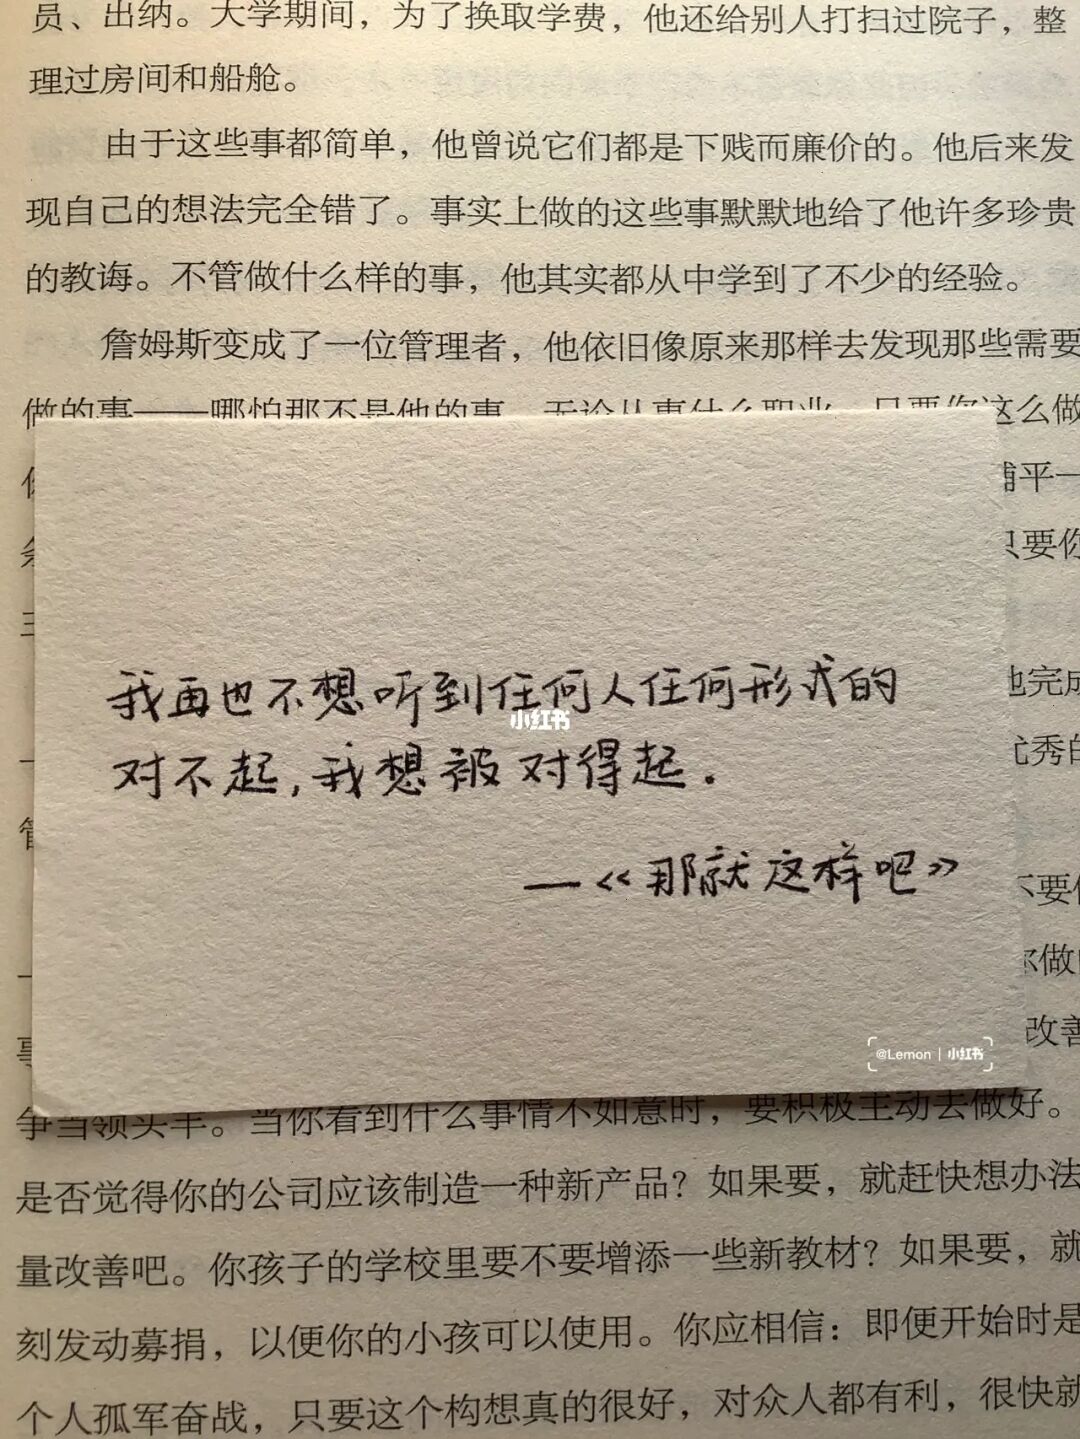 员、出纳。大学期间，为了换取学费，他还给别人打扫过院子，整
理过房间和船舱。
由于这些事都简单，他曾说它们都是下贱而廉价的。他后来发
现自己的想法完全错了。事实上做的这些事默默地给了他许多珍贵
的教诲。不管做什么样的事，他其实都从中学到了不少的经验。
詹姆斯变成了一位管理者，他依旧像原来那样去发现那些需要
做的事——哪怕那不是他的事。无论从事什么职业，只要你这么做
铺平一
只要你
我再也不想听到任何人任何形式的
小红书
对不起，我想被对得起.
—《那就这样吧》
地完成
优秀的
管
不要
你做
事
改善
@Lemon | 小红书
争当领头羊。当你看到什么事情不如意时，要积极主动去做好。
是否觉得你的公司应该制造一种新产品？如果要，就赶快想办法
量改善吧。你孩子的学校里要不要增添一些新教材？如果要，就
刻发动募捐，以便你的小孩可以使用。你应相信：即便开始时是
个人孤军奋战，只要这个构想真的很好，对众人都有利，很快就